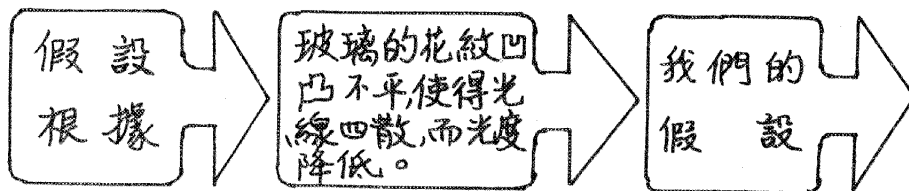 假設
根據
玻璃的花紋凹
凸不平,使得光
線四散,而光度
降低。
我們的
假設